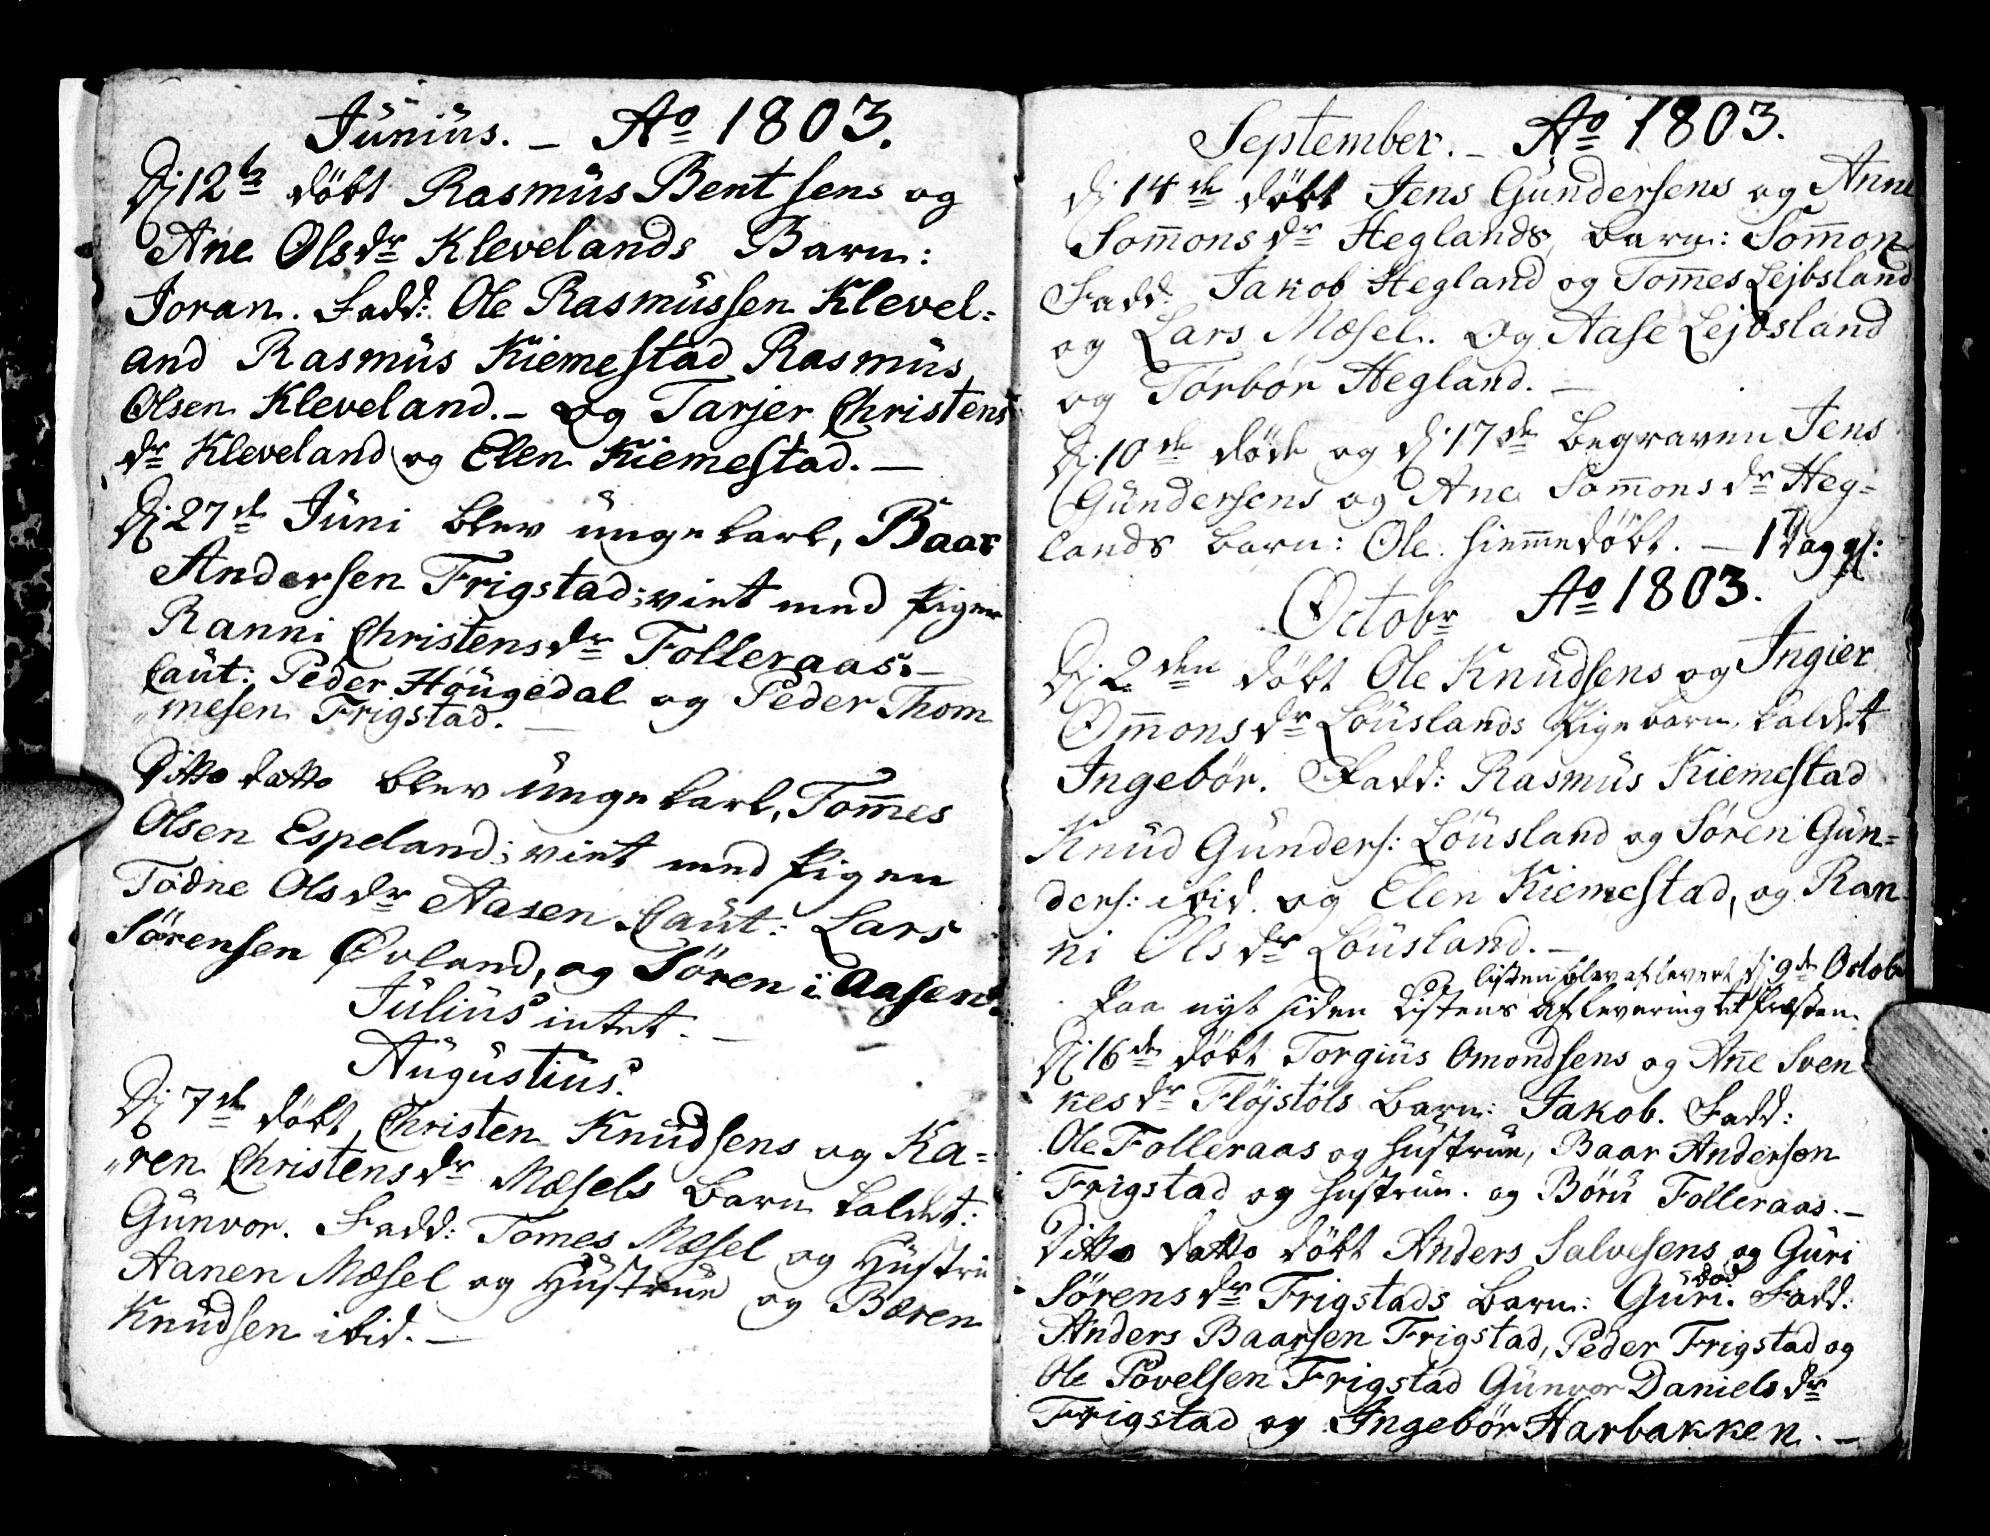 Junius. – Ao 1803.
Dj 12te døbt Rasmus Bentsens og
Ane Olsdr Klevelands Barn:
Joran. Fadd: Ole Rasmussen Klevel=
and Rasmus Kiemestad Rasmus
Olsen Kleveland. – og Tarjer Christens
dr Kleveland og Elen Kiemestad. –
Dj 27de Juni blev unge karl, Baar
Andersen Frigstad; viet med Pigen
Ranni Christensdr Folleraas. –
Caut: Peder Høugedal og Peder Thom
„mesen Frigstad. –
Ditto datto blev unge karl, Tom̄es
Olsen Espeland; viet med Pigen
Todne Olsdr Aasen Caut: Lars
Sørensen Øvland, og Søren i Aasen.
Julius intet. –
Augustius.
Dj 7de døbt Christen Knudsens og Ka=
„ren Christensdr Mæsels Barn kaldet:
Gunvor. Fadd: Tomes Mæsel og Hustru
Aanen Mæsel og Hustrue og Bæren
Knudsen ibid. –
September. – Ao 1803.
dj 14de døbt Jens Gundersens og Anne
Som̄onsdr Heglands, barn: Som̄on
Fadd: Jakob Hegland og Tom̄es Lejbsland
og Lars Mæsel. Og Aase Lejbsland
og Torbor Hegland. –
Dj 10de døde og dj 17de begraven Jens
Gundersens og Ane Som̄onsdr Heg=
lands barn: Ole. hiem̄edøbt. – 1 Dag gl:
Octobr Ao 1803.
Dj 2den døbt Ole Knudsens og Ingier
Om̄onsdr Louslands Pigebarn, kaldet
Ingebør. Fadd: Rasmus Kiemestad
Knud Gunders: Lousland og Søren Gun=
ders: ibid. og Elen Kiemestad, og Ran
ni Olsdr Lousland. –
listen blev aflevert dj 9de Octob
Paa nyt siden Listens aflevering til Præsten.
Dj 16de døbt Torgius Omondsens og Ane Sven
kesdr Fløjstøls Barn: Jakob. Fadd:
Ole Folleraas og hustrue, Baar Andersen
Frigstad og hustrue. og Børu Folleraas. –
Ditto datto døbt Anders Salvesens og Guri
Sørensdr Frigstads Barn: Guri. død Fadd:
Anders Baarsen Frigstad, Peder Frigstad og
Ole Povelsen Frigstad Gunvor Danielsdr
Frigstad og Ingebør Harbakken. –